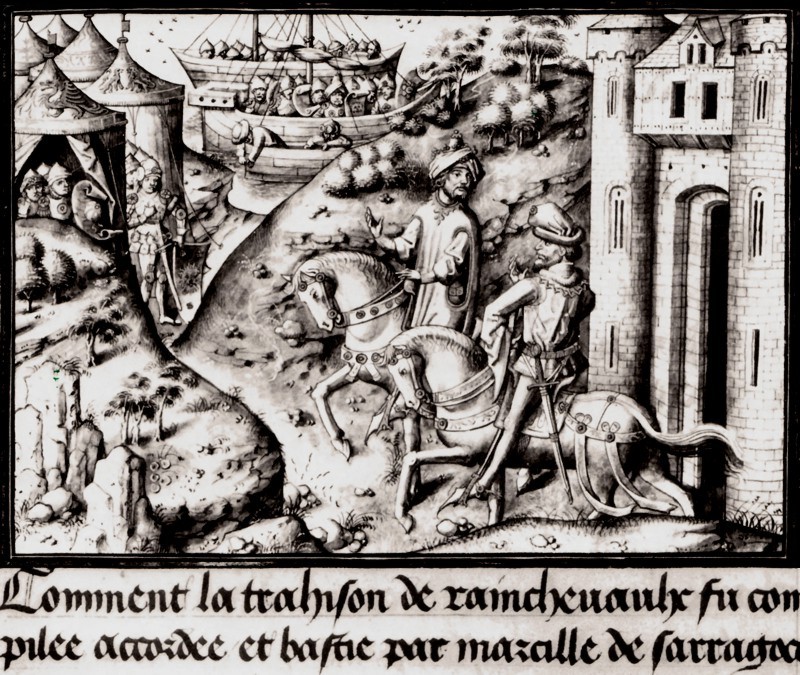 Comment la trahison de raincheuaulx fu com
pilee accordee et bastie par marcille de sarragoce